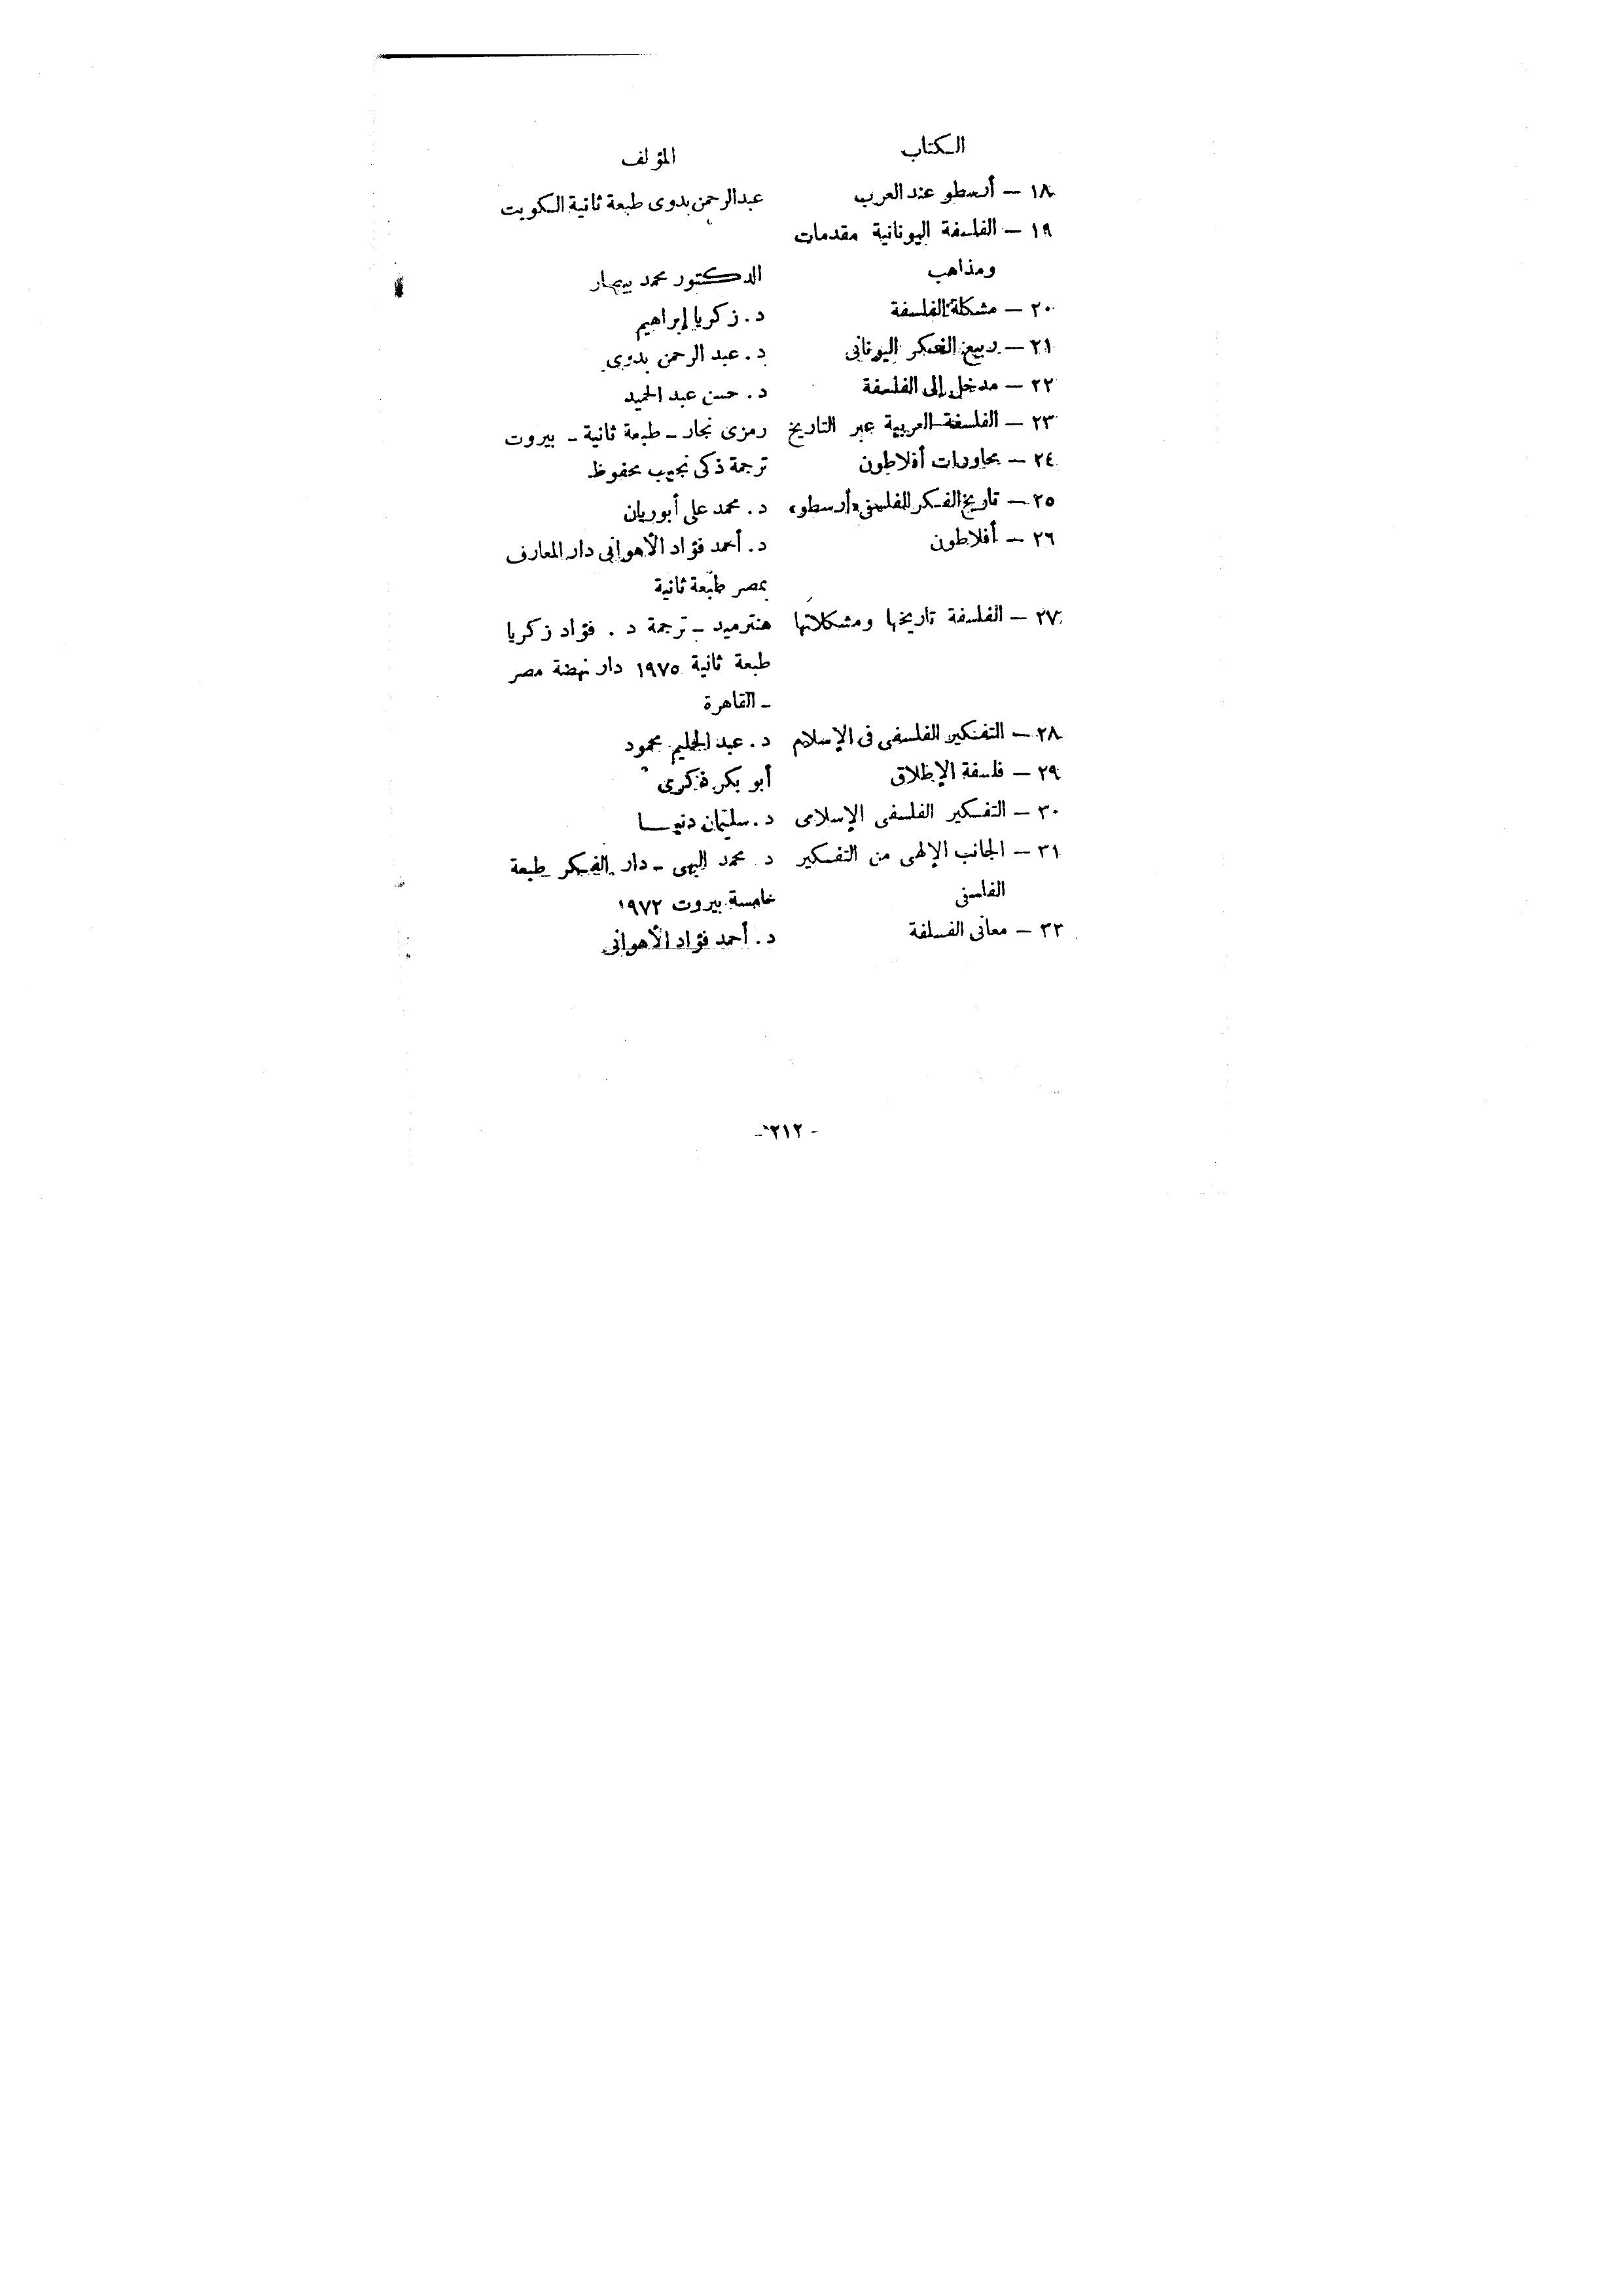 الكتاب المؤلف
١٨ – أرسطو عند العرب عبدالرحمن بدوى طبعة ثانية الكويت
١٩ – الفلسفة اليونانية مقدمات
ومذاهب الدكتور محمد بيصار
٢٠ – مشكلة الفلسفة د. زكريا إبراهيم
٢١ – ربيع الفكر اليونانى د. عبد الرحمن بدوى
٢٢ – مدخل إلى الفلسفة د. حسن عبد الحميد
٢٣ – الفلسفة العربية عبر التاريخ رمزى نجار – طبعة ثانية – بيروت
٢٤ – محاورات أفلاطون ترجمة ذكى نجيب محفوظ
٢٥ – تاريخ الفكر الفلسفى «أرسطو» د. محمد على أبوريان
٢٦ – أفلاطون د. أحمد فؤاد الأهوانى دار المعارف
بمصر طبعة ثانية
٢٧ – الفلسفة تاريخها ومشكلاتها هنترميد – ترجمة د . فؤاد زكريا
طبعة ثانية ١٩٧٥ دار نهضة مصر
– القاهرة
٢٨ – التفكير الفلسفى فى الإسلام د. عبد الحليم محمود
٢٩ – فلسفة الإطلاق أبو بكر ذكرى
٣٠ – التفكير الفلسفى الإسلامى د. سليمان دنيا
٣١ – الجانب الإلهى من التفكير د محمد البهى – دار الفكر طبعة
الفلسفى خامسة بيروت ١٩٧٢
٣٢ – معانى الفسلفة د. أحمد فؤاد الأهوانى
– ٢١٢ –